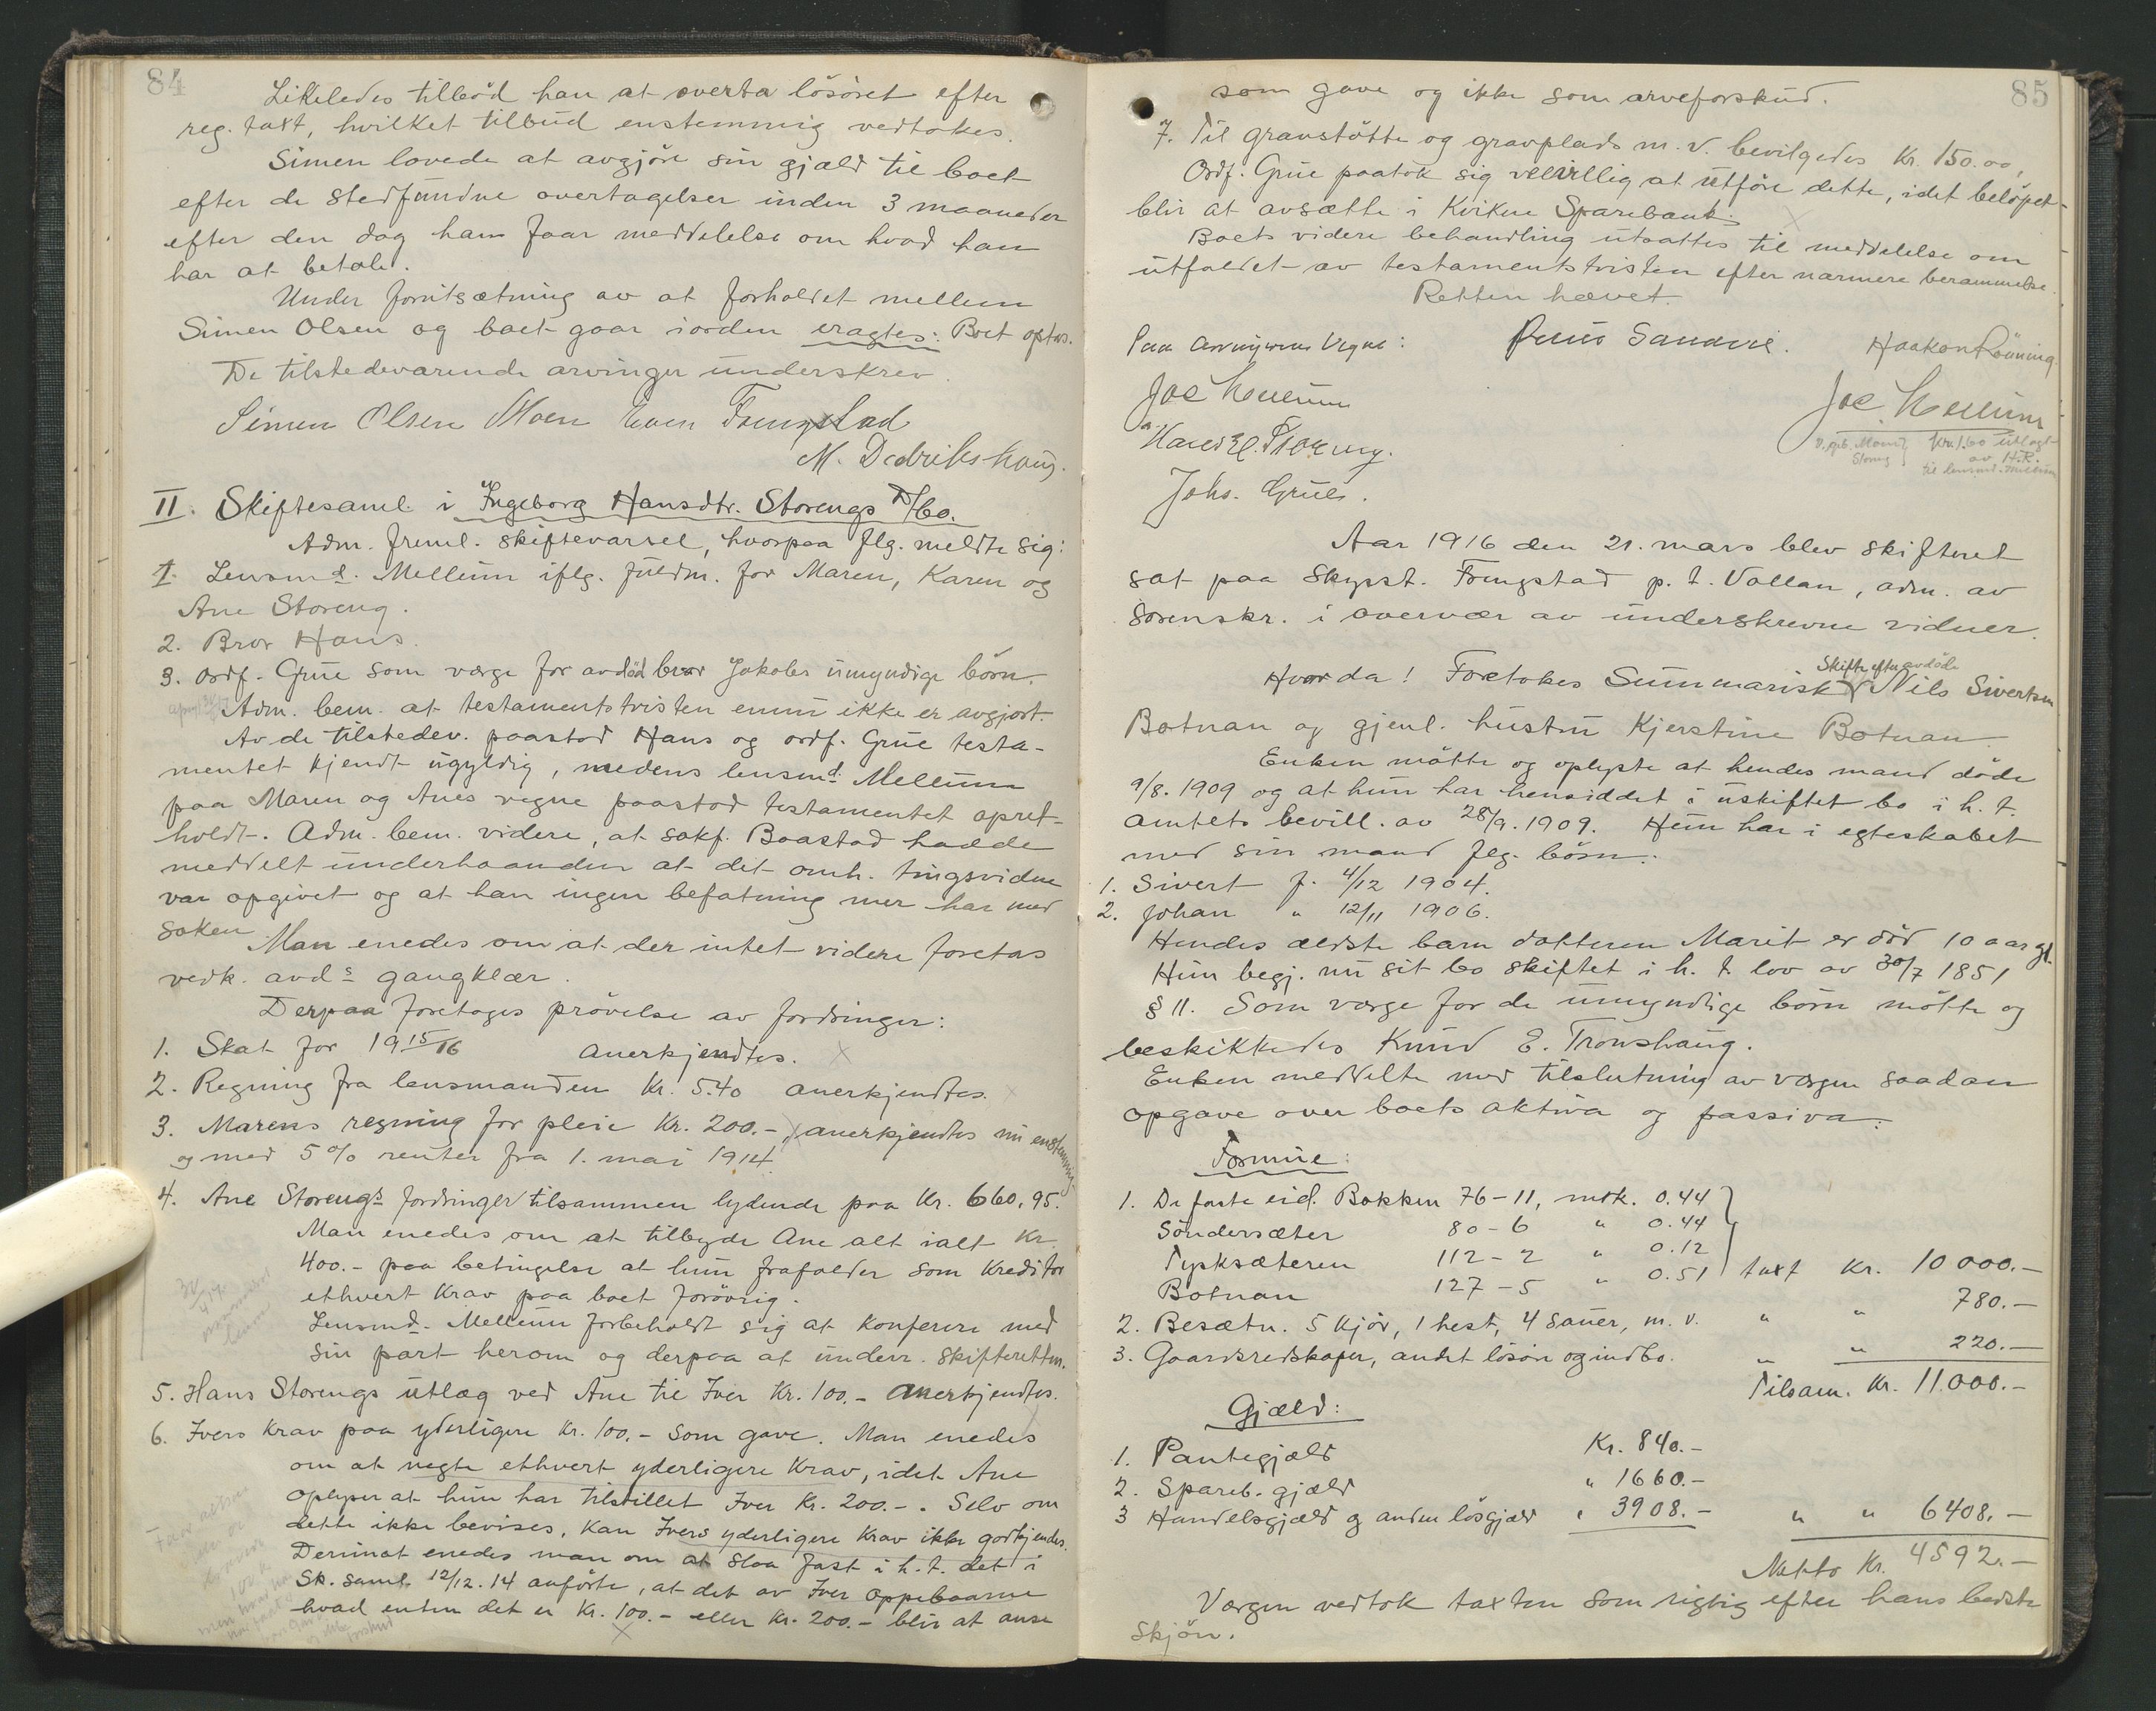 84
Likeledes tilbød han at overta løsøret efter
reg. taxt, hvilket tilbud enstemmig vedtokes.
Simen lovede at avgjøre sin gjæld til boet
efter de stedfundne overtagelser inden 3 maaneder
efter den dag han faar meddelelse om hvad han
har at betale.
Under forutsætning av at forholdet mellem
Simen Olsen og boet gaar iorden eragtes: Boet optas.
De tilstedeværende arvinger underskrev.
Simen Olsen Moen Even Frengstad
M. Dedrikshaug.
II. Skiftesaml. i Ingeborg Hansdtr. Storengs D/bo.
Adm. freml. skiftevarsel, hvorpaa flg. meldte sig:
1. Lensmd. Mellum iflg. fuldm. for Maren, Karen og
Ane Storeng.
2. Bror Hans.
3. Ordf. Grue som værge for avdød bror Jakobs umyndige børn.
Adm. bem. at testamentstvisten ennu ikke er avgjort.
Av de tilstedev. paastod Hans og ordf. Grue testa-
mentet kjendt ugyldig, medens lensmd. Mellum
paa Maren og Anes vegne paastod testamentet opret-
holdt. Adm. bem. videre, at sakf. Baastad hadde
meddelt underhaanden at det omh. tingsvidne
var opgivet og at han ingen befatning mer har med
saken.
Man enedes om at der intet videre foretas
vedk. avds gangklær.
Derpaa foretoges prøvelse av fordringer:
1. Skat for 1915/16 anerkjendtes. X
2. Regning fra lensmanden Kr. 5.40 anerkjendtes. X
3. Marens regning for pleie Kr. 200.- X anerkjendtes nu enstemmig
og med 5% renter fra 1. mai 1914.
4. Ane Storengs fordringer tilsammen lydende paa Kr. 660,95.
Man enedes om at tilbyde Ane alt ialt Kr.
400.- paa betingelse at hun frafalder som kreditor
ethvert krav paa boet forøvrig.
Lensmd. Mellum forbeholdt sig at konferere med
sin part herom og derpaa at underr. skifteretten.
5. Hans Storengs utlæg ved Ane til Iver Kr. 100.- anerkjendtes.
6. Ivers krav paa yderligere Kr. 100.- som gave. Man enedes
om at negte ethvert yderligere krav, idet Ane
oplyser at hun har tilstillet Iver Kr. 200.-. Selv om
dette ikke bevises, kan Ivers yderligere krav ikke godkjendes.
Derimot enedes man om at slaa fast i h. t. det i
Sk. saml. 12/12.14 anførte, at det av Iver oppebaarne
hvad enten det er Kr. 100.- eller Kr. 200.- blir at anse
X
85
som gave og ikke som arveforskud.
7. Til gravstøtte og gravplads m. v. bevilgedes Kr. 150.00,
Ordf. Grue paatok sig velvillig at utføre dette, idet beløpet
blir at avsætte i Kvikne Sparebank.
X
Boets videre behandling utsattes til meddelelse om
utfaldet av testamentstvisten efter nærmere berammelse.
Retten hævet.
Paa Arvingernes Vegne: Sandvik. Haakon Rønning
Joe Mellum
Joe Mellum
Hans H. Storeng.
Kr. 1.60 utlagt
av H.R.
til lensmd. Mellum
Johs. Grue.
Aar 1916 den 21. mars blev skifteret
sat paa skysst. Frengstad p. t. Vollan, adm. av
sorenskr. i overvær av underskrevne vidner.
Hvorda! Foretokes summarisk skifte efter avdøde Nils Sivertsen
Botnan og gjenl. hustru Kjerstine Botnan.
Enken møtte og oplyste at hendes mand døde
9/8. 1909 og at hun har hensiddet i uskiftet bo i h. t.
amtets bevill. av 28/9. 1909. Hun har i egteskabet
med sin mand flg. børn:
1. Sivert f. 4/12 1904.
2. Johan " 12/11 1906.
Hendes ældste barn datteren Marit er død 10 aar gl.
Hun begj. nu sit bo skiftet i h. t. lov av 30/7 1851
§ 11. Som værge for de umyndige børn møtte og
beskikkedes Knud E. Tronshaug.
Enken meddelte med tilslutning av værgen saadan
opgave over boets aktiva og passiva:
Formue:
1. De faste eid. Bakken 76-11, msk. 0.44
Søndersæter 80-6 " 0.44
Tysksæteren 112-2 " 0.12
Botnan 127-5 " 0.51 taxt Kr. 10 000.-
2. Besætn. 5 kjør, 1 hest, 4 sauer, m. v. " " 780.-
3. Gaardsredskaper, andet løsøre og indbo. " " 220.-
Tilsam. Kr. 11.000.-
Gjæld:
1. Pantegjæld Kr. 840.-
2. Spareb. gjæld " 1660.-
3 Handelsgjæld og anden løsgjæld " 3908.- " " 6408.-
Netto Kr. 4592.-
Værgen vedtok taxten som rigtig efter hans bedste
skjøn.